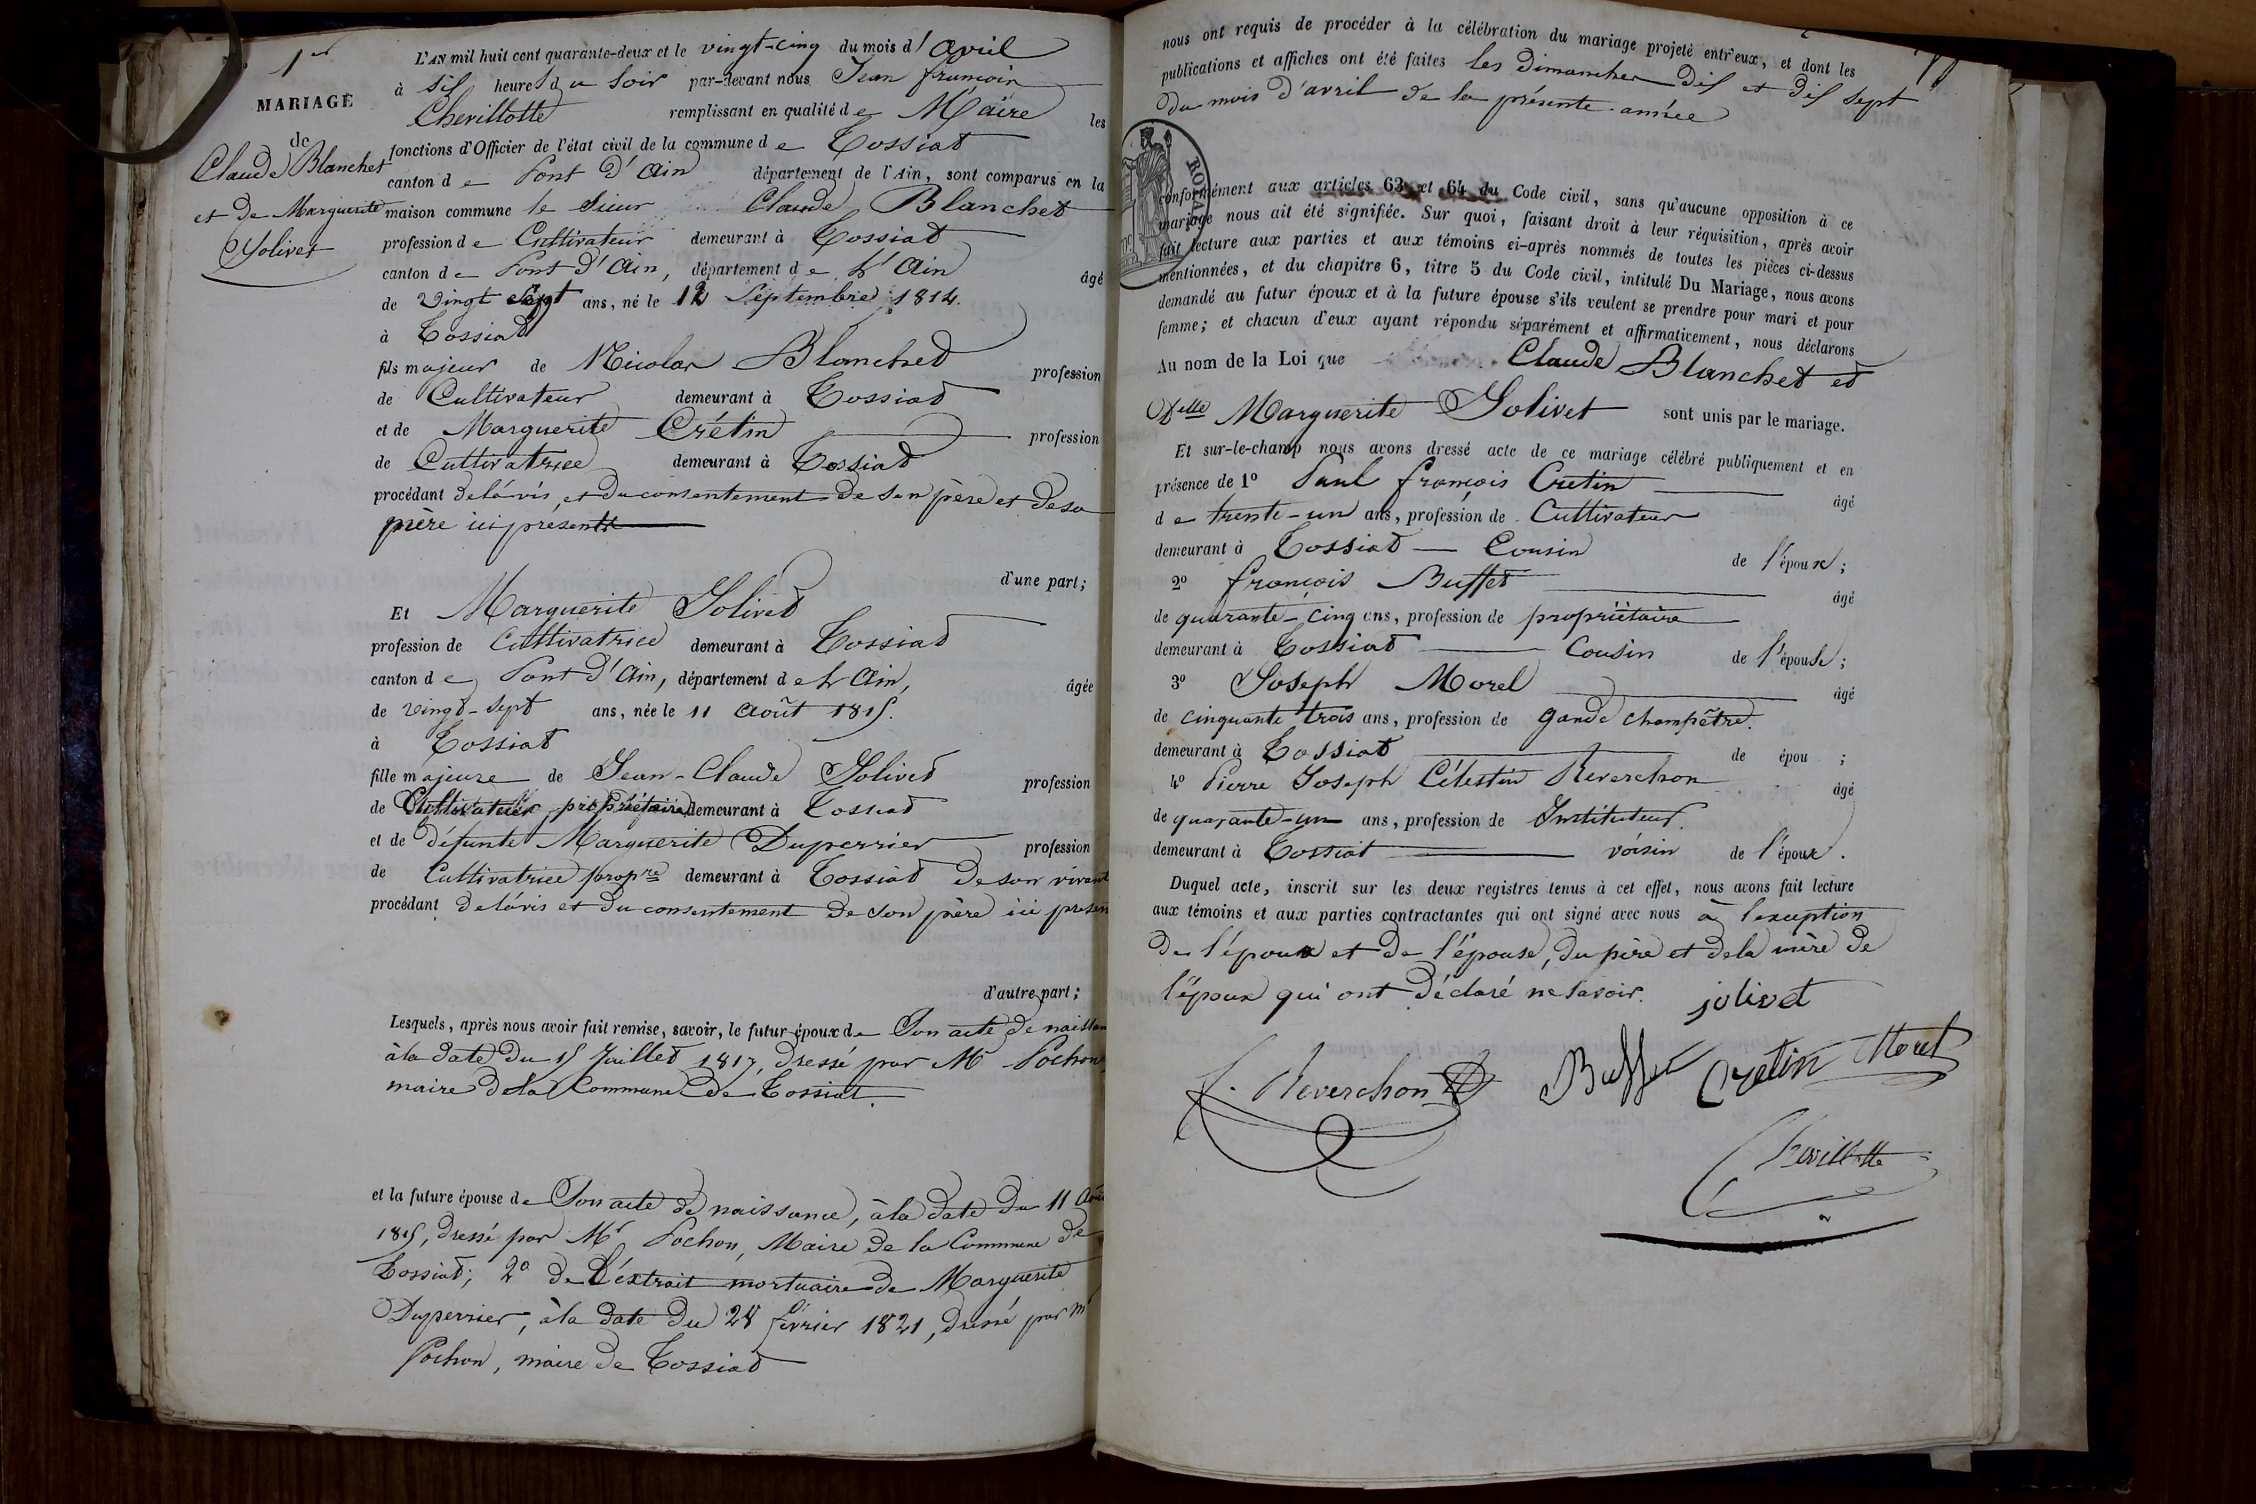 1er
MARIAGE
de
Claude Blanchet
et de Marguerite
Jolivet
L'AN mil huit cent quarante-deux et le vingt-cinq du mois d'avril
à six heures du soir par-devant nous Jean françois
Chevillotte remplissant en qualité de Maire les
fonctions d'Officier de l'état civil de la commune de Tossiat
canton de Pont d'Ain département de l'Ain, sont comparus en la
maison commune le Sieur Claude Blanchet
profession de Cultivateur demeurant à Tossiat
canton de Pont d'Ain, département de l'Ain âgé
de vingt sept ans, né le 12 Septembre 1814.
à Tossiat
fils majeur de Nicolas Blanchet profession
de Cultivateur demeurant à Tossiat
et de Marguerite Crétin profession
de Cultivatrice demeurant à Tossiat
procédant de l'avis et du consentement de son père et de sa
mère ici présents
d'une part;
Et Marguerite Jolivet
profession de Cultivatrice demeurant à Tossiat
canton de Pont d'Ain, département de l'Ain, âgée
de vingt-sept ans, née le 11 août 1815.
à Tossiat
fille majeure de Jean-Claude Jolivet profession
de Cultivateur propriétaire demeurant à Tossiat
et de défunte Marguerite Duperrier profession
de Cultivatrice propre demeurant à Tossiat de son vivant
procédant de l'avis et du consentement de son père ici présen
d'autre part;
Lesquels, après nous avoir fait remise, savoir, le futur époux de Son acte de naissan
à la date du 15 Juillet 1817, dressé par Mr Pochon,
maire de la Commune de Tossiat.
et la future épouse de Son acte de naissance, à la date du 11 Août
1815, dressé par Mr Pochon, Maire de la Commune de
Tossiat; 2° de L'extrait mortuaire de Marguerite
Duperrier, à la date du 28 février 1821, dressé par Mr
Pochon, maire de Tossiat
nous ont requis de procéder à la célébration du mariage projeté entr'eux, et dont les
publications et affiches ont été faites les Dimanches dix et dix sept
du mois d'avril de la présente année
conformément aux articles 63 et 64 du Code civil, sans qu'aucune opposition à ce
mariage nous ait été signifiée. Sur quoi, faisant droit à leur réquisition, après avoir
fait lecture aux parties et aux témoins ci-après nommés de toutes les pièces ci-dessus
mentionnées, et du chapitre 6, titre 5 du Code civil, intitulé Du Mariage, nous avons
demandé au futur époux et à la future épouse s'ils veulent se prendre pour mari et pour
femme; et chacun d'eux ayant répondu séparément et affirmativement, nous déclarons
Au nom de la Loi que Claude Blanchet et
Delle Marguerite Jolivet sont unis par le mariage.
Et sur-le-champ nous avons dressé acte de ce mariage célébré publiquement et en
présence de 1° Paul françois Cretin âgé
de trente-un ans, profession de Cultivateur
demeurant à Tossiat Cousin de l'époux;
2° françois Buffet âgé
de quarante-cinq ans, profession de propriétaire
demeurant à Tossiat Cousin de l'épouse;
3° Joseph Morel âgé
de cinquante trois ans, profession de garde champêtre.
demeurant à Tossiat de épou ;
4° Pierre Joseph Célestin Reverchon âgé
de quarante-un ans, profession de Instituteur.
demeurant à Tossiat voisin de l'époux.
Duquel acte, inscrit sur les deux registres tenus à cet effet, nous avons fait lecture
aux témoins et aux parties contractantes qui ont signé avec nous à l'exception
de l'époux et de l'épouse, du père et de la mère de
l'époux qui ont déclaré ne savoir. jolivet
Reverchon Buffet Cretin Morel
Chevillotte